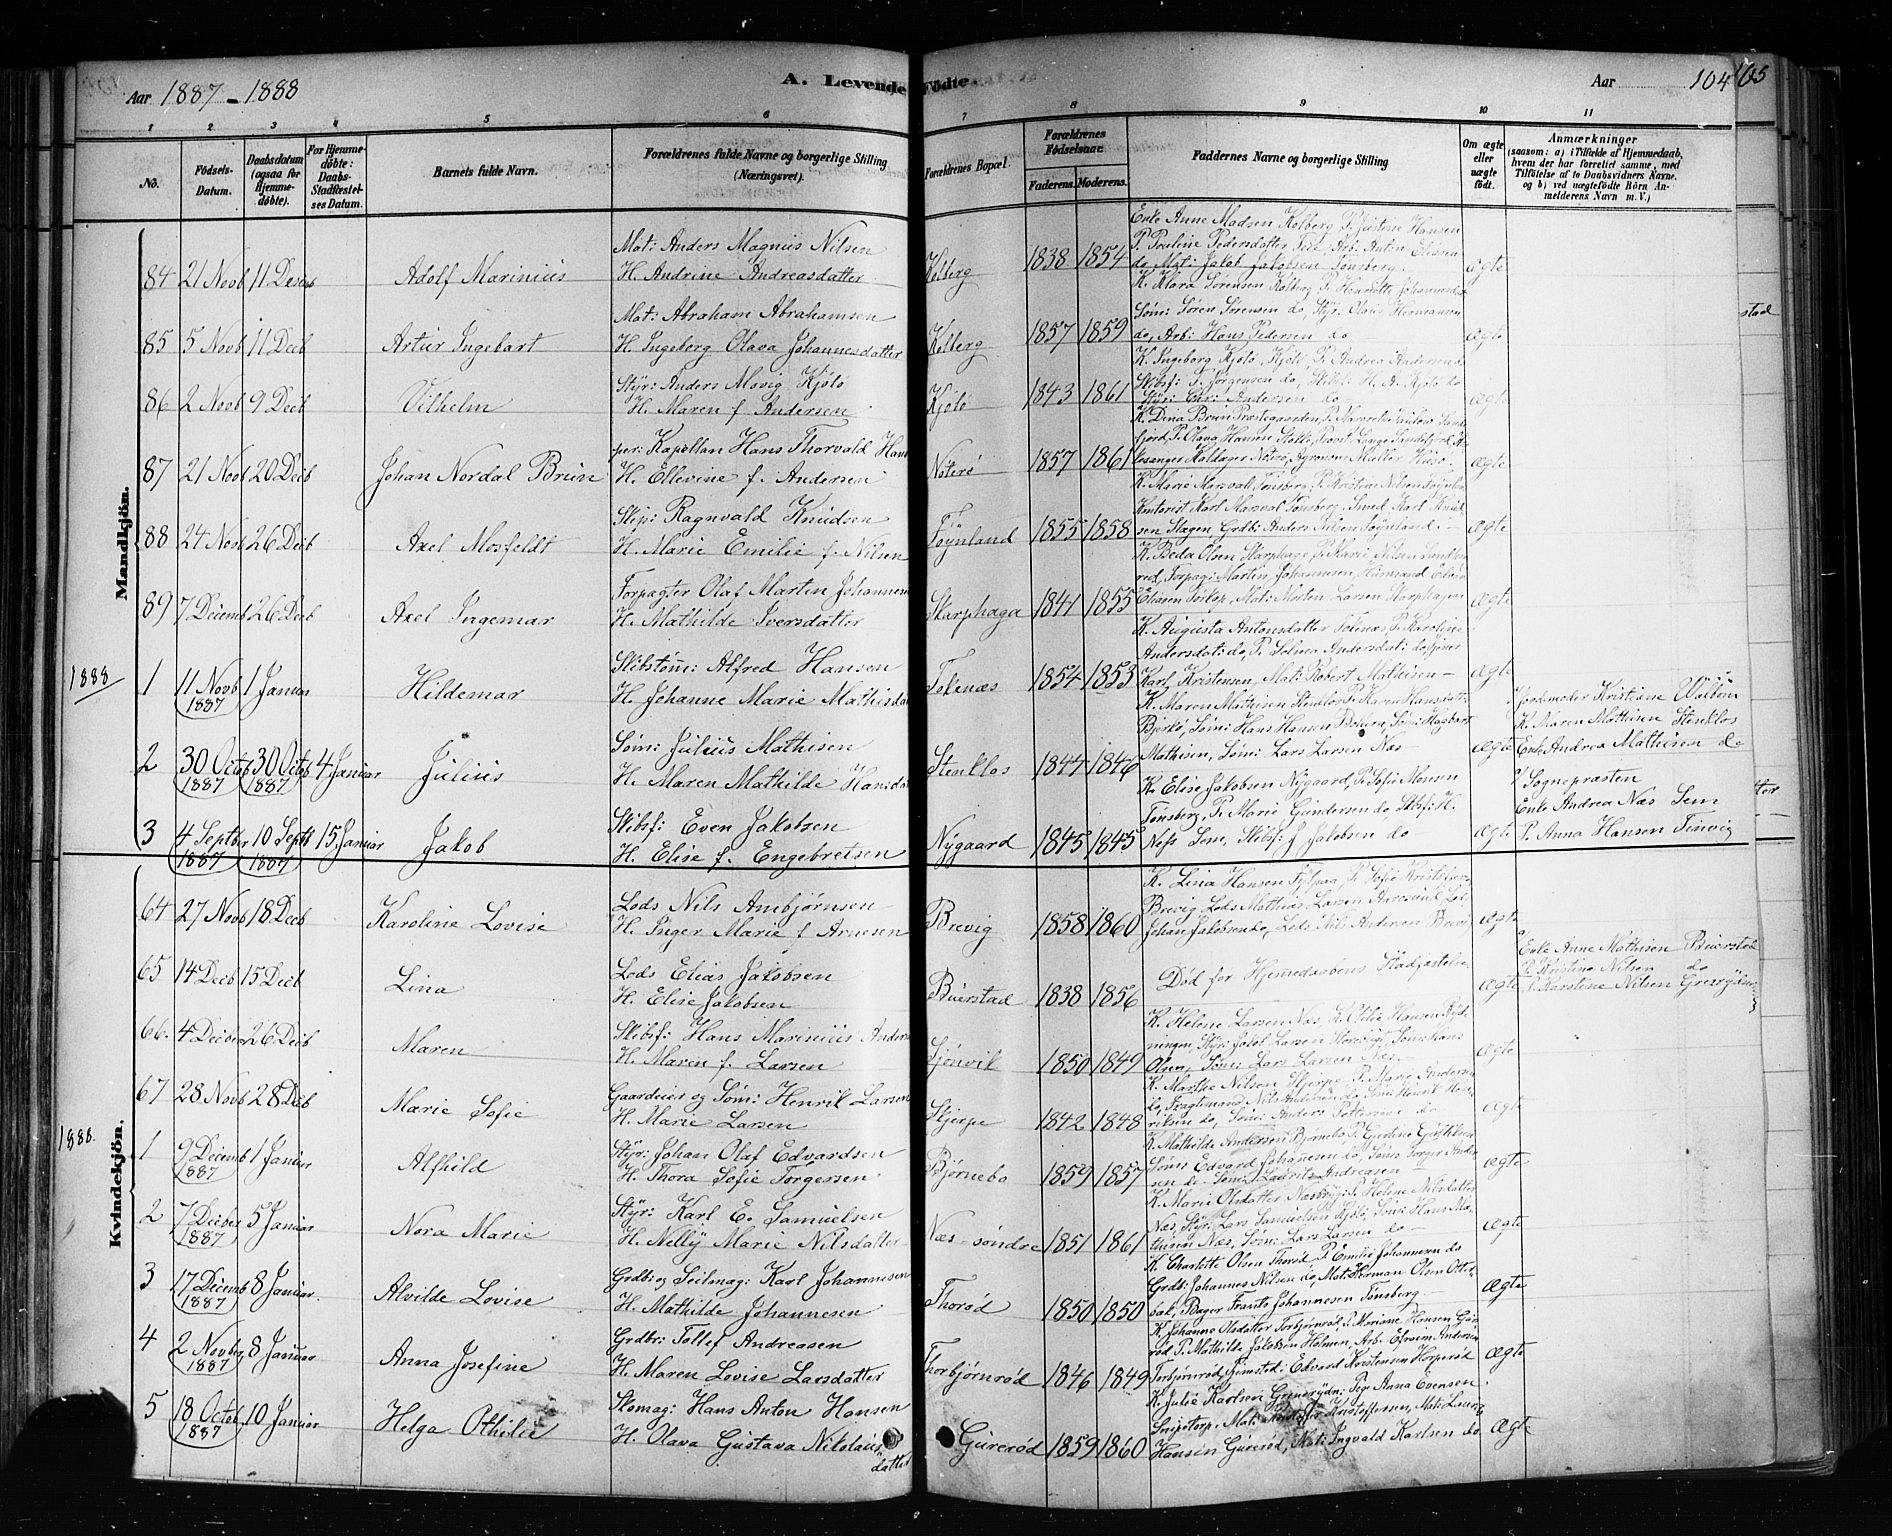 Aar 1887-1888
A. Levende Födte.
Aar
104
105
1 2 3 4 5 6 7 8 9 10 11
No.
Födsels-Datum.
Daabsdatum (ogsaa for Hjemmedöbte).
For Hjemmedöbte: Daabs-Stadfæstelses Datum.
Barnets fulde Navn.
Forældrenes fulde Navne og borgerlige Stilling (Næringsvei).
Forældrenes Bopæl.
Forældrenes Födselsaar.
Faderens. Moderens.
Faddernes Navne og borgerlige Stilling
Om ægte eller uægte födt.
Anmærkninger
(saasom: a) i Tilfælde af Hjemmedaab, hvem der har forrettet samme, med Tilföielse af to Daabsvidners Navne, og b) ved uægtefödte Börn Anmelderens Navn m. V.)
Mandkjön.
84 21 Novb 11 Desemb Adolf Marinius Mat: Anders Magnus Nilsen H. Andrine Andreasdatter Kolberg 1838 1854 Enke Anne Madsen Kolberg P. Justine Hansen P. Pauline Pedersdatter Arb: Anton Eliasen do, Mat: Jakob Jakobsen Tønsberg. ægte
85 5 Novb 11 Decb Artur Ingebart Mat: Abraham Abrahamsen H. Ingeborg Olava Johannesdatter Kolberg 1857 1859 K. Klara Sörensen Kolberg P. Henriette Johannesdat Söm: Sören Sörensen do, Styr: Olaus Hermansen do, Arb: Hans Pedersen do ægte
86 2 Novb 9 Decb Vilhelm Styr: Anders Movig Kjölö H. Maren f. Andersen Kjölö 1843 1861 K. Ingeborg Kjölö, Kjölö, P. Andrea Andersen do Skibsf: S. Jørgensen do, Skibsf: H. A. Kjölö do Styr: Andersen do ægte
87 21 Novb 20 Decb Johan Nordal Brun per: Kapellan Hans Thorvald Hans H. Ellevine f. Andersen Nøterö 1857 1861 K. Dina Brun Præstegaarden, P. Olava Hansen Provst Lange Sandefjord Nøterö, Agronom Møller ægte
88 24 Novb 26 Decb Axel Mosfeldt Skip: Ragnvald Knudsen H. Marie Emilie f. Nilsen Föynland 1855 1858 K. Marie Marsval Tønsberg, P. Kristine Nilsen Föynland Kontorist Karl Marsval Tønsberg, Smed Karl Knudsen Slagen, Grdb: Anders Nilsen Föynland. ægte
89 7 Decemb 26 Decb Axel Ingemar Forpagter Olaf Martin Johannesen H. Mathilde Iversdatter Skarphaga 1841 1855 K. Beda Olsen Skarphage, P. Marie Nilsen Forpag: Martin Johannesen, Husmand Eliasen Mat: Morten Larsen Skarphagen ægte
1888
1 11 Novb 1887 1 Januar Hildemar Skibstöm: Alfred Hansen H. Johanne Marie Mathisdat Tokenæs 1854 1853 K. Augusta Antonsdatter Tokenæs, P. Karoline Andersdat: do, P. Selma Andersdat: do Karl Kristensen, Mat: Robert Mathisen ægte
2 30 Octob 1887 30 Octob 1887 4 Januar Julius Söm: Julius Mathisen H. Maren Mathilde Hansdat Stenklos 1844 1846 K. Maren Mathisen Stenklos P. Karen Hansdatt: Bjerkö, Söm: Hans Hansen Söm: Hagbart Mathisen, Söm: Lars Larsen Næs ægte Jordemoder Kristiane Walbom K. Maren Mathisen Stenklos Enke Andrea Mathisen do
3 4 Septber 1887 10 Septb 1887 15 Januar Jakob Skibsf: Even Jakobsen H. Elise f. Engebretsen Nygaard 1845 1845 K. Elise Jakobsen Nygaard, P. Sofie Monsen Tønsberg, P. Marie Gundersen do Skibsf: H. Næs Sem, Skibsf: J. Jakobsen do ægte Sognepræsten Enke Andrea Næs Sem P. Anna Hansen Tinvig
Kvindekjön.
64 27 Novb 18 Decb Karoline Lovise Lods Nils Ambjörnsen H. Inger Marie f. Arnesen Brevig 1858 1860 K. Lina Hansen P. Sofie Brevig Lods Mathias Larsen Aarøsund, Johan Jakobsen do, Lods Nils Andersen Brevig ægte
65 14 Decb 15 Decb Lina Lods Elias Jakobsen H. Elise Jakobsen Buerstad 1838 1856 Död før Hjemedaabens Stadfæstelse ægte Enke Anne Mathisen Buerstad P. Kristine Nilsen do P. Karoline Nilsen Gresrydningen
66. 4 Decber 26 Decb Maren Skibsf: Hans Marinius Anders H. Maren f. Larsen Sjönvik 1850 1849 K. Helene Larsen Næs P. Otilie Hansen Rydningen, Styr: Jakob Larsen Söm: Hans Olsen, Söm: Lars Larsen Næs ægte
67 28 Novb 28 Decb Marie Sofie Gaardeier og Söm: Henrik Larsen H. Marie Larsen Skjerpe 1842 1848 K. Marthe Nilsen Skjerpe, P. Marie Andersen do, Fragtemand Nils Andersen do, Söm: Henrik Henriksen do, Söm: Anders Pettersen do ægte
1888.
1 9 Decemb 1887 1 Januar Alfhild Styr: Johan Olaf Edvardsen H. Thora Sofie Torgersen Bjørnebo 1859 1857 K. Mathilde Andersen Bjørnebo P. Gjertine Söm: Edvard Johannesen do, Söm: Torger Andersen do Söm: Laurits Andreasen ægte
2 7 Decber 1887 5 Januar Nora Marie Styr: Karl E. Samuelsen H. Nelly Marie Nilsdatter Næs-søndre 1851 1861 K. Marie Olsdatter Næsbryg: P. Helene Nilsdatter Næs, Styr: Lars Samuelsen Kjölö, Söm: Hans Mathisen Næs, Söm: Lars Larsen do ægte
3 17 Decemb 1887 8 Januar. Alvilde Lovise Grdb: og Seilmag: Karl Johannesen H. Mathilde Johannesen Thorød 1850 1850 K. Charlotte Olsen Thorød, P. Emilie Johannesen do Grdb: Johannes Nilsen do, Mat: Herman Olsen Otterbak, Bager Frants Johannesen Tønsberg ægte
4 2 Novber 1887 8 Januar Anna Josefine Grdbr: Tollef Andreasen H. Maren Lovise Larsdatter Thorbjørnrød 1846 1849 K. Johanne Olsdatter Torbjørnrød, P. Mariane Hansen P. Mathilde Jakobsen Holmen, Arb: Efraim Andersen Torbjørnrød, Edvard Kristensen Horperød ægte
5 18 Octob 1887 10 Januar Helga Othilie Skomag: Hans Anton Hansen H. Olava Gustava Nikolaisdatter Gurerød 1859 1860 K. Julie Karlsen Grenerydn: Pige Anna Evensen Mat: Kristoffer Kristoffersen, Mat: Laurits Hansen Gurerød, Mat: Ingvald Karlsen do ægte